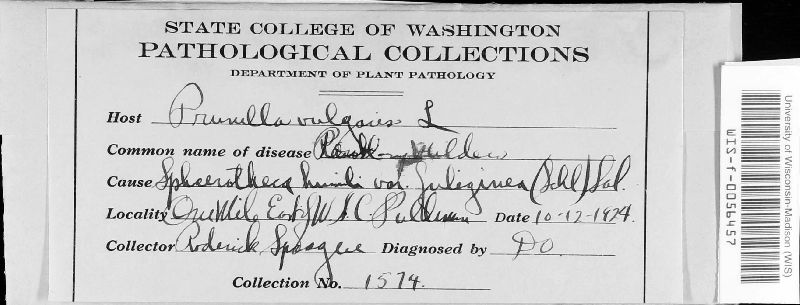 STATE COLLEGE OF WASHINGTON
PATHOLOGICAL COLLECTIONS
DEPARTMENT OF PLANT PATHOLOGY
Host Prunella vulgaris L
Common name of disease Mildew
Cause Sphaerotheca humili var. fuliginea (Schl) Sal.
Locality One Mile East of W S C Pullman Date 10-12-1924.
Collector Roderick Sprague Diagnosed by DO
Collection No. 1574.
University of Wisconsin-Madison (WIS)
WIS-f-0056457